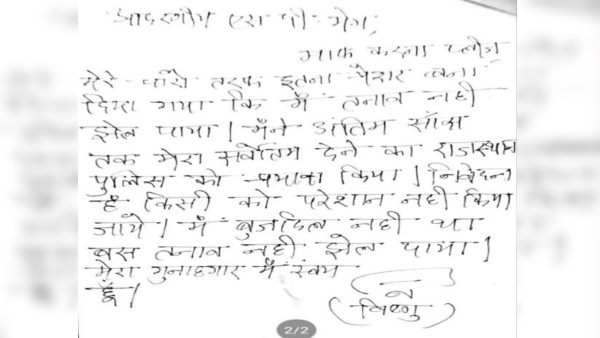 आदरणीय एस पी मैम,
माफ करना प्लीज,
मेरे चारों तरफ इतना प्रेशर बना
दिया गया कि मैं तनाव नहीं
झेल पाया। मैंने अंतिम साँस
तक मेरा सर्वोतम देने का राजस्थान
पुलिस को प्रयास किया। निवेदन
है किसी को परेशान नहीं किया
जाये। मैं बुजदिल नहीं था
बस तनाव नहीं झेल पाया।
मेरा गुनाहगार मैं स्वंय
हूँ।
(विष्णु)
2/2